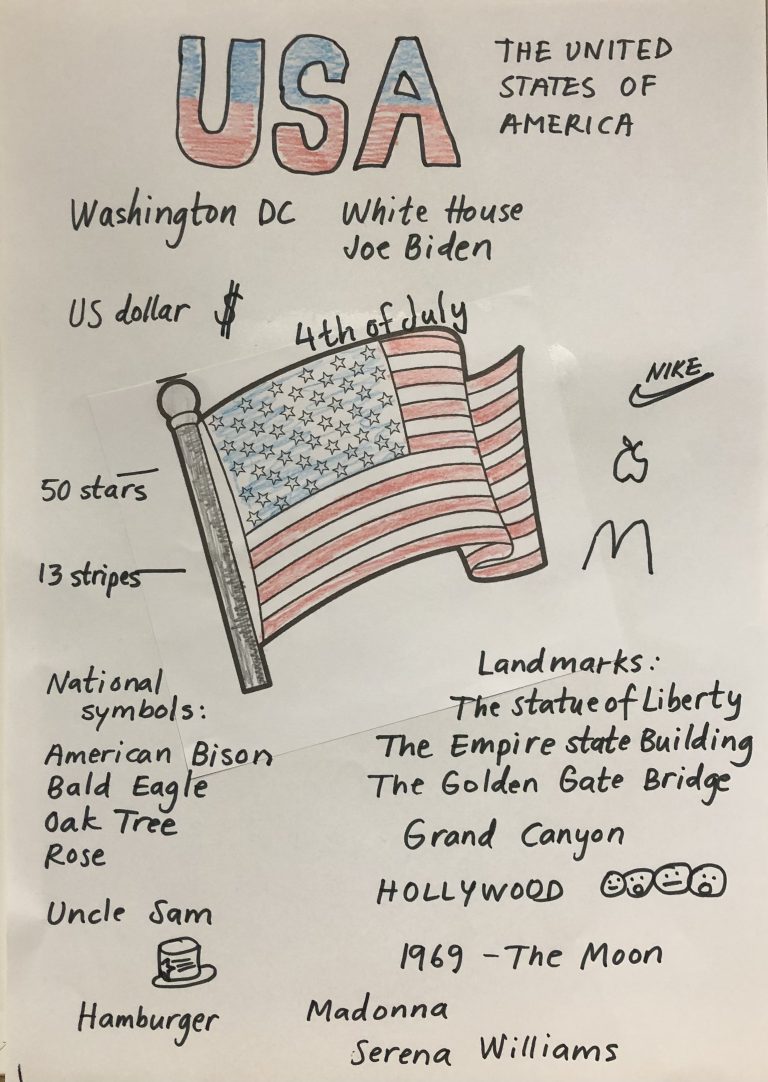 USA
THE UNITED
STATES OF
AMERICA
Washington DC
White House
Joe Biden
US dollar $
4th of July
NIKE
50 stars
M
13 stripes
National
symbols:
American Bison
Bald Eagle
Oak Tree
Rose
Landmarks:
The statue of Liberty
The Empire state Building
The Golden Gate Bridge
Grand Canyon
HOLLYWOOD
Uncle Sam
1969 - The Moon
Hamburger
Madonna
Serena Williams